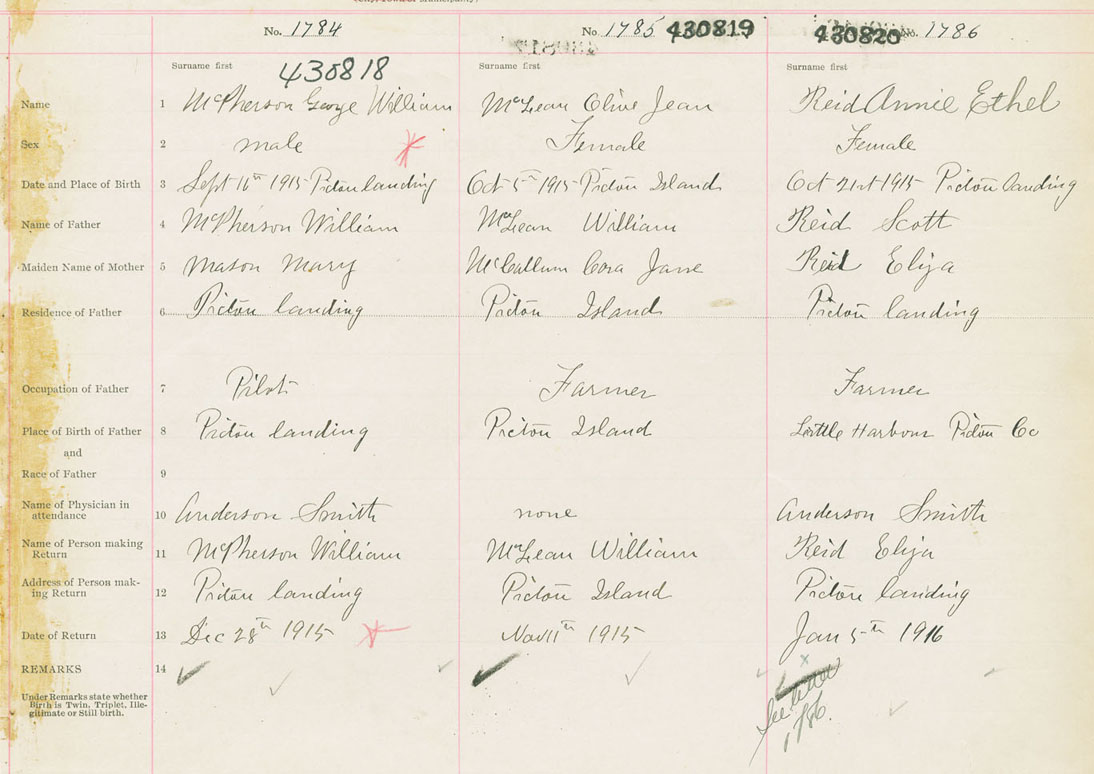 No. 1784 No 1785 430819 430820 No. 1786
Surname first Surname first Surname first
430818
Name 1 McPherson George William McLean Olive Jean Reid Annie Ethel
Sex 2 male Female Female
Date and Place of Birth 3 Sept 16th 1915 Pictou landing Oct 5th 1915 Pictou Island Oct 21st 1915 Pictou landing
Name of Father 4 McPherson William McLean William Reid Scott
Maiden Name of Mother 5 Mason Mary McCallum Cora Jane Reid Eliza
Residence of Father 6 Pictou landing Pictou Island Pictou landing
Occupation of Father 7 Pilot Farmer Farmer
Place of Birth of Father 8 Pictou landing Pictou Island Little Harbour Pictou Co
and
Race of Father 9
Name of Physician in
attendance 10 Anderson Smith none Anderson Smith
Name of Person making
Return 11 McPherson William McLean William Reid Eliza
Address of Person mak-
ing Return 12 Pictou landing Pictou Island Pictou landing
Date of Return 13 Dec 28th 1915 Nov 11th 1915 Jan 5th 1916
REMARKS 14
Under Remarks state whether
Birth is Twin, Triplet, Ille-
gitimate or Still birth.
See letter
1786.